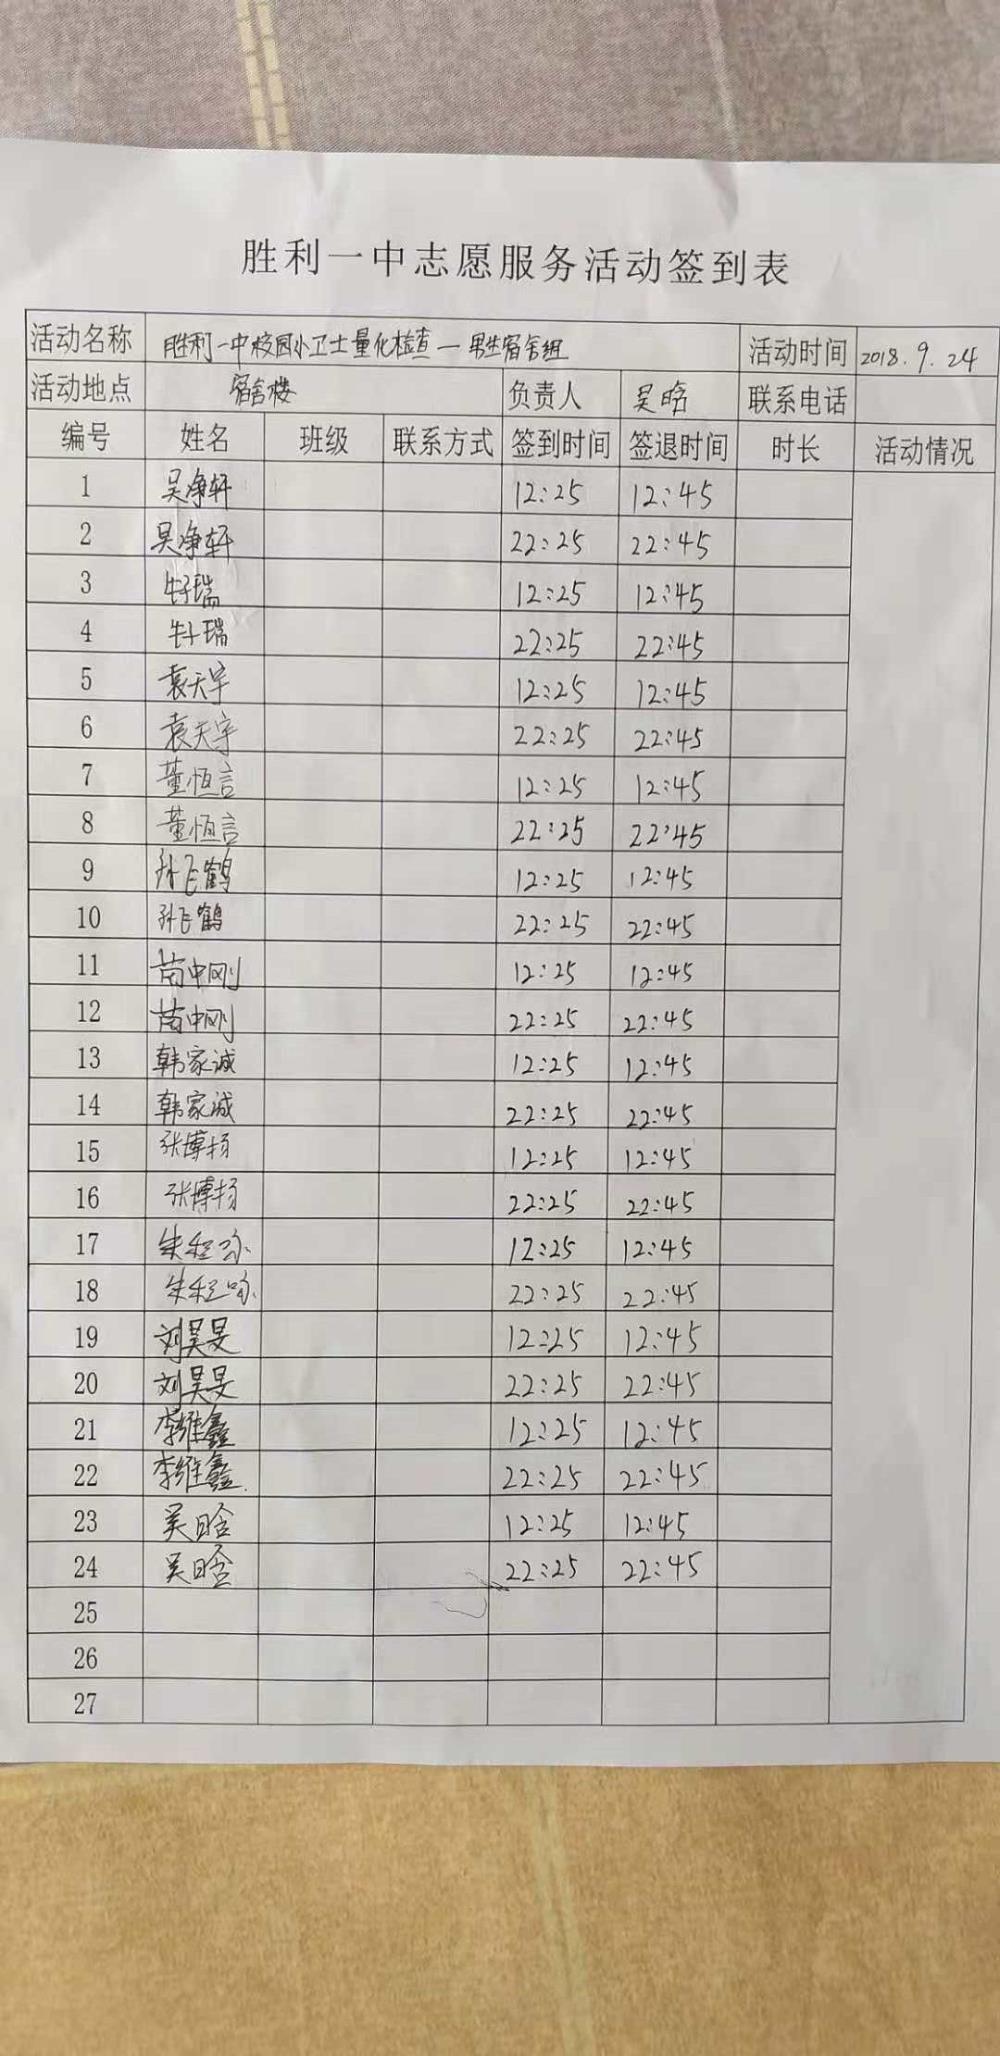 胜利一中志愿服务活动签到表
活动名称 胜利一中校园小卫士量化检查—男生宿舍组 活动时间 2018.9.24
活动地点 宿舍楼 负责人 吴晗 联系电话
编号 姓名 班级 联系方式 签到时间 签退时间 时长 活动情况
1 吴净轩 12:25 12:45
2 吴净轩 22:25 22:45
3 12:25 12:45
4 22:25 22:45
5 袁天宇 12:25 12:45
6 袁天宇 22:25 22:45
7 董恒言 12:25 12:45
8 董恒言 22:25 22:45
9 孙飞鹤 12:25 12:45
10 孙飞鹤 22:25 22:45
11 苗中刚 12:25 12:45
12 苗中刚 22:25 22:45
13 韩家诚 12:25 12:45
14 韩家诚 22:25 22:45
15 张博扬 12:25 12:45
16 张博扬 22:25 22:45
17 12:25 12:45
18 22:25 22:45
19 刘昊旻 12:25 12:45
20 刘昊旻 22:25 22:45
21 李维鑫 12:25 12:45
22 李维鑫 22:25 22:45
23 吴晗 12:25 12:45
24 吴晗 22:25 22:45
25
26
27